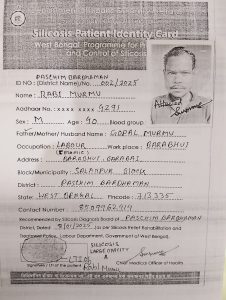 Silicosis Patient Identity Card
West Bengal Programme for
and Control of Silicosis
PASCHIM BARDHAMAN
ID NO: (District Name)/No. 002/2025
Name : RABI MURMU
Aadhaar No.: xxxx xxxx 9291
Attested
Sex : M Age : 40 Blood group
Father/Mother/Husband Name : GOPAL MURMU
Occupation : LABOUR Work place : BARABHUI
Address : BARABHUI, GORABAI
Block/Municipality : SALANPUR BLOCK
District : PASCHIM BARDHAMAN
State : WEST BENGAL Pincode : 713335
Contact Number :
Recommended by Silicosis Diagnosis Board of PASCHIM BARDHAMAN
District, Dated (as per Silicosis Relief Rehabilitation and
Treatment Policy, Labour Department, Government of West Bengal).
SILICOSIS
LARGE OPACITY
A
Rabi Murmu
Chief Medical Officer of Health